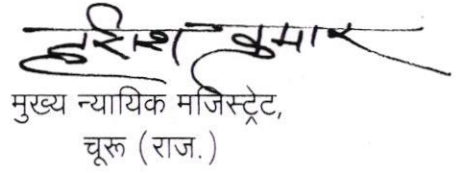 हरिश कुमार
मुख्य न्यायिक मजिस्ट्रेट,
चूरू (राज.)